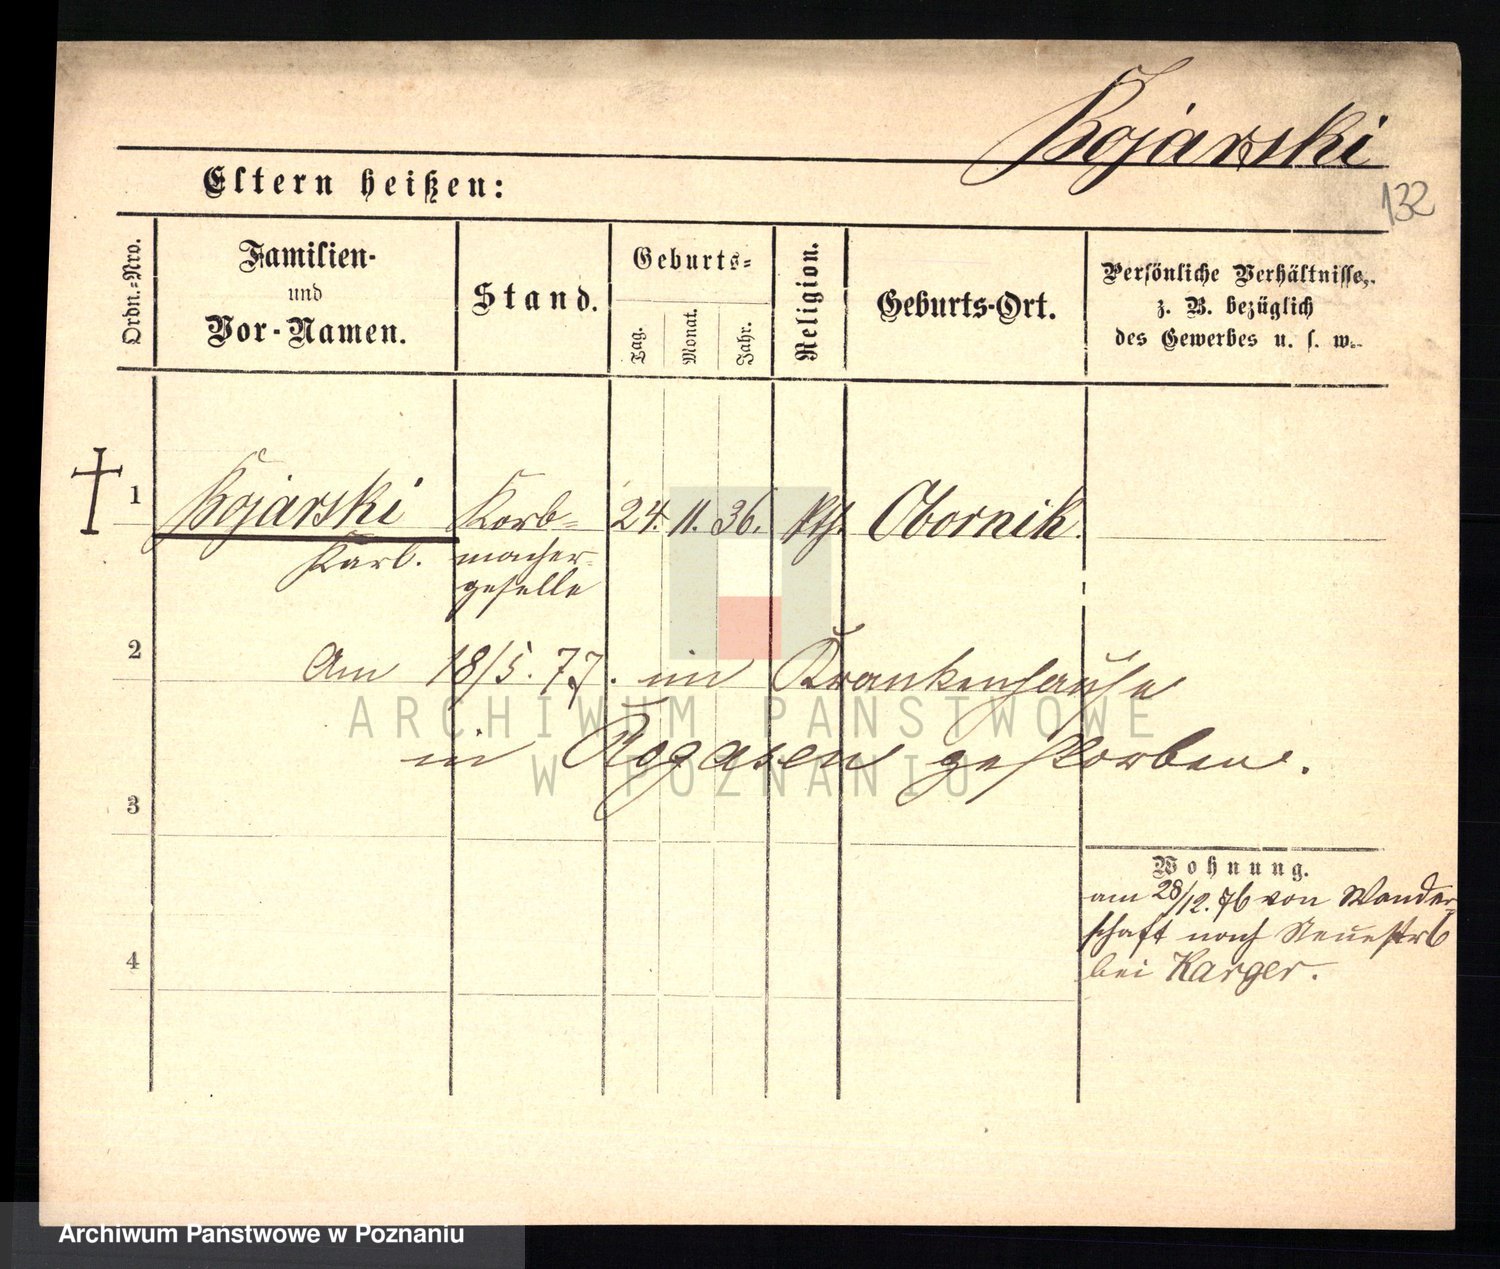 Kojarski
132
Eltern heißen:
Ordn.-Nro.
Familien-
und
Vor-Namen.
Stand.
Geburts-
Tag.
Monat.
Jahr.
Religion.
Geburts-Ort.
Persönliche Verhältnisse,
z. B. bezüglich
des Gewerbes u. s. w.
1
Kojarski
Karl.
Korb-
macher-
geselle
24. 11. 36.
kth.
Obornik.
2
Am 18/5. 77. im Krankenhause
in Rogasen gestorben.
3
4
Wohnung.
am 28/12. 76 von Wander-
schaft nach Neuestr 6
bei Karger.
ARCHIWUM PAŃSTWOWE
W POZNANIU
Archiwum Państwowe w Poznaniu